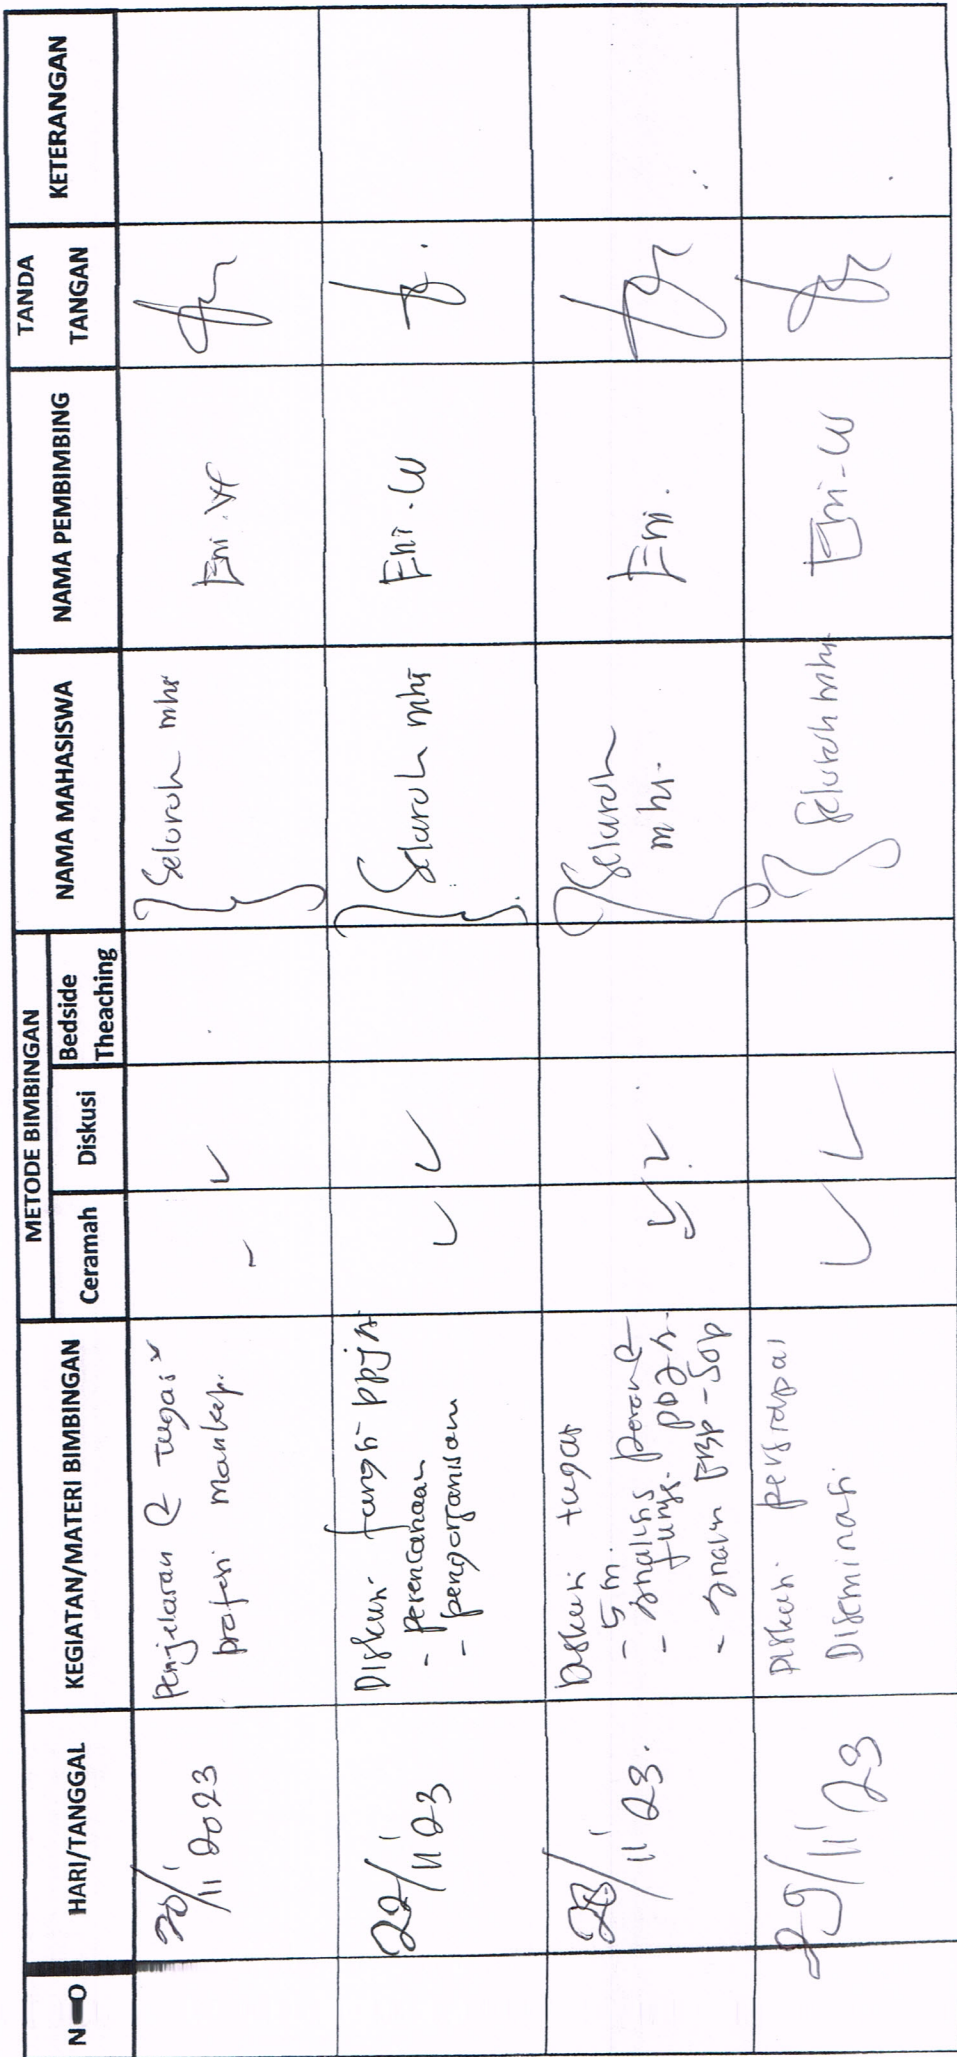 NO
HARI/TANGGAL
KEGIATAN/MATERI BIMBINGAN
METODE BIMBINGAN
Ceramah
Diskusi
Bedside
Theaching
NAMA MAHASISWA
NAMA PEMBIMBING
TANDA
TANGAN
KETERANGAN
20/11 2023
Penjelasan tugas
profesi mankep.
Seluruh mhs
Eni.W
22/11 23
Diskusi fungsi PPJA
- perencanaan
- pengorganisam
Seluruh mhs
Eni.W
/11 23.
Diskusi tugas
- 5 m.
- Analisis peran
fungsi
- EBP - SOP
Seluruh
mhs.
Eni.
29/11 23
Diskusi persiapan
Diseminasi.
Seluruh mhs
Eni-W